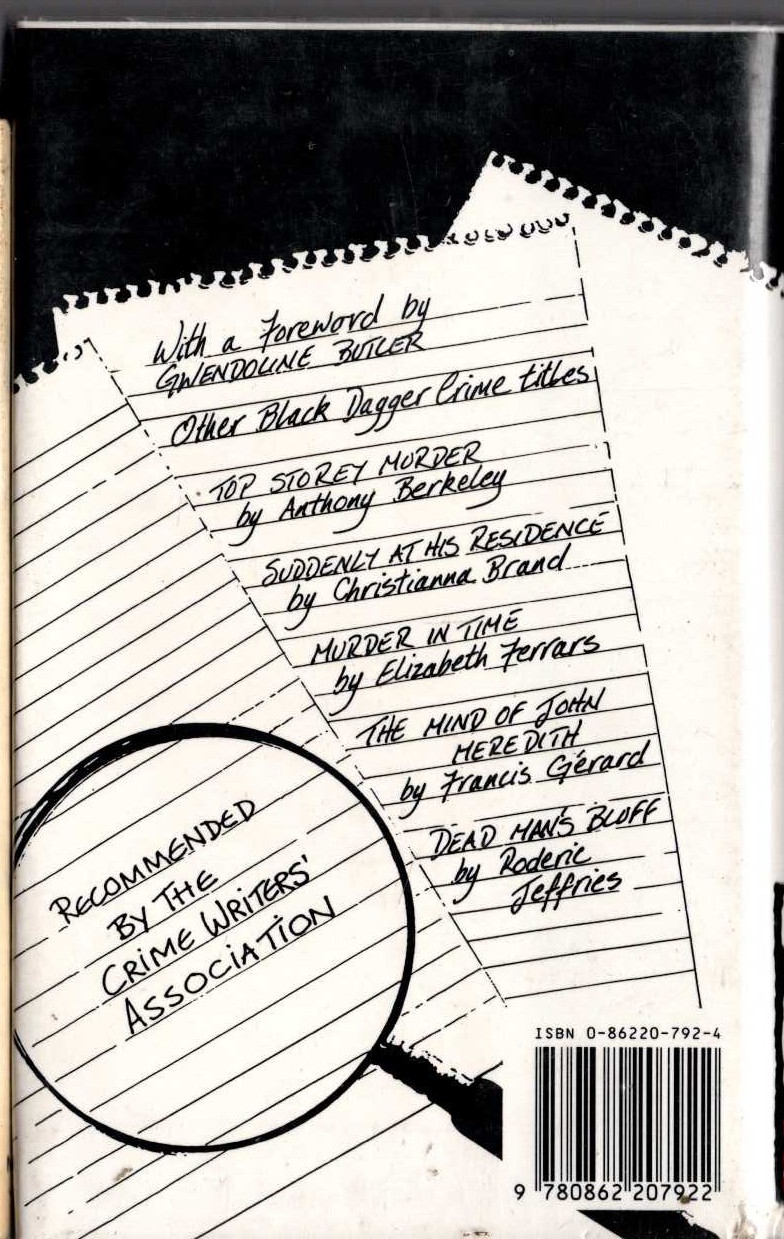 With a Foreword by
GWENDOLINE BUTLER
Other Black Dagger Crime titles
TOP STOREY MURDER
by Anthony Berkeley
SUDDENLY AT HIS RESIDENCE
by Christianna Brand
MURDER IN TIME
by Elizabeth Ferrars
THE MIND OF JOHN
MEREDITH
by Francis Gérard
DEAD MAN'S BLUFF
by Roderic
Jeffries
RECOMMENDED
BY THE
CRIME WRITERS'
ASSOCIATION
ISBN 0-86220-792-4
9 780862 207922